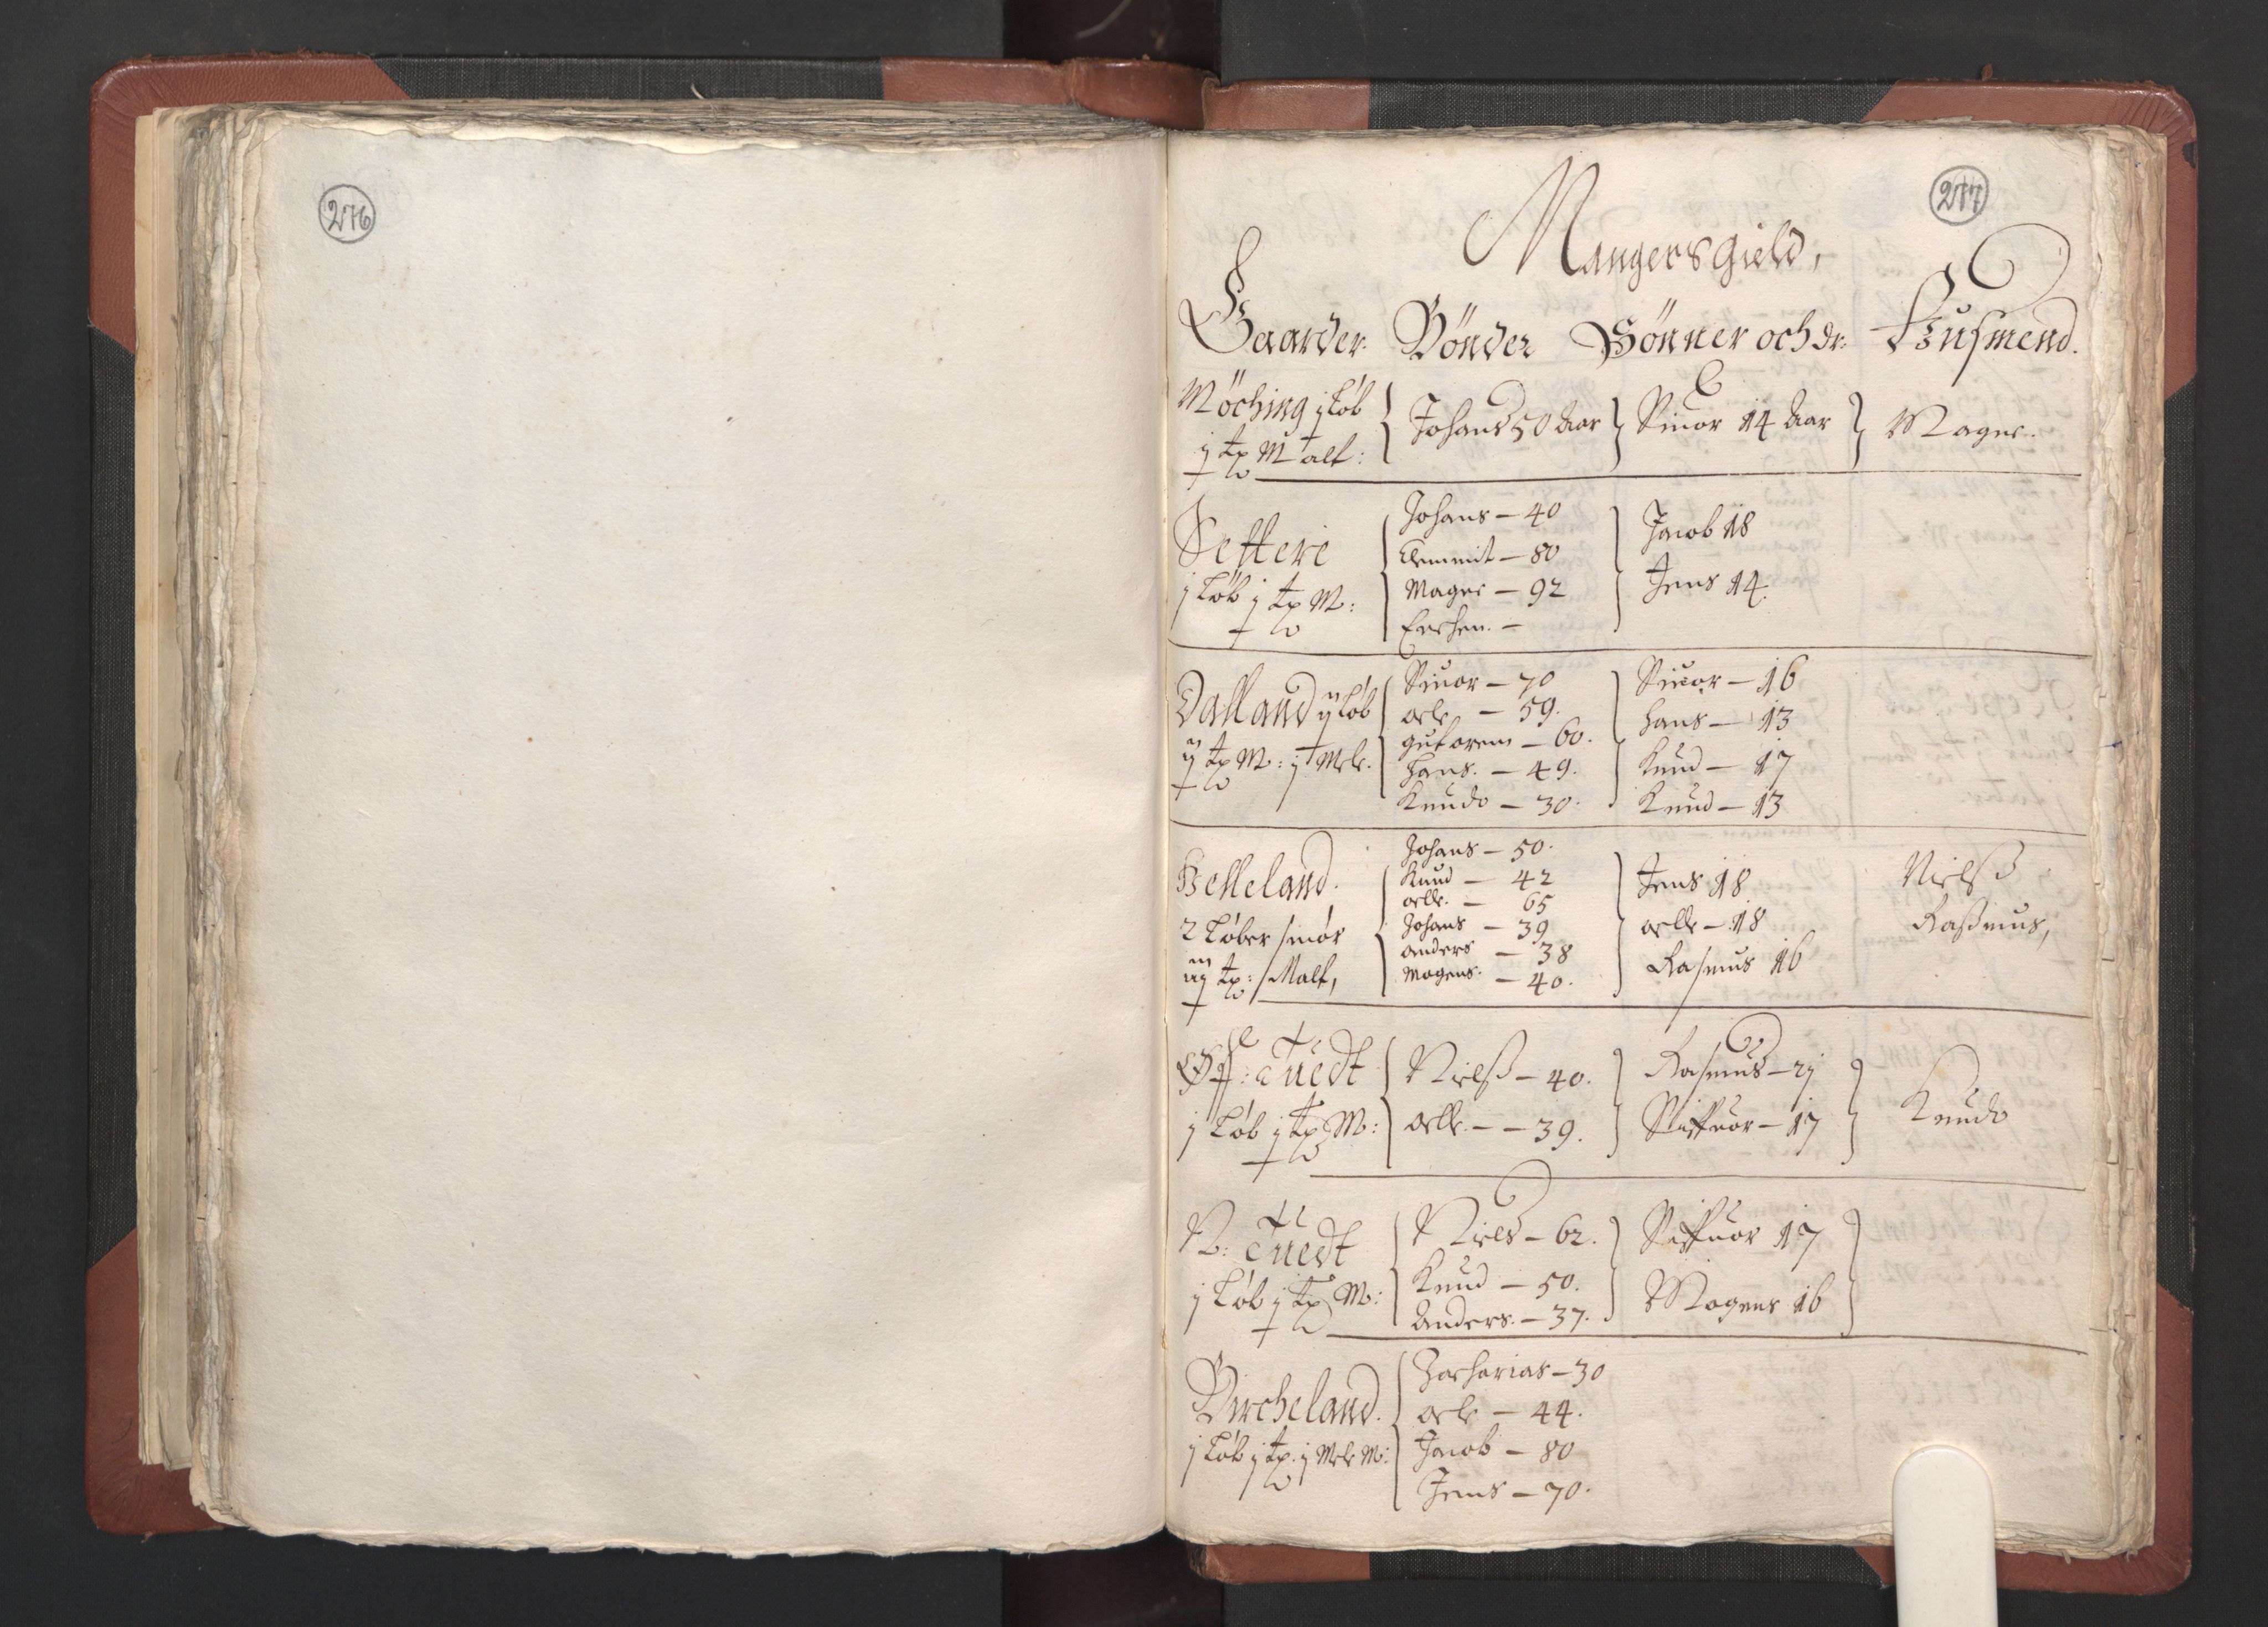 276
277
Mangers gield,
Gaarder. Bönder Sönner och dr: Husmend.
Möching j Løb
j tp Malt:
Johans 50 Aar
Siuor 14 Aar
Magne.
Settere
j Løb j tp M:
Johans – 40
Clemmit – 80
Magne – 92
Jacob 18
Jens 14.
Dalland ij Løb
ij tp M: j Mele.
Siuor – 70
Olle – 59.
Gutorem – 60.
Hans. – 49.
Knudt – 30.
Siuor – 16
Hans – 13
Knud – 17
Knud – 13
Helleland.
2 Løber smør
iij tp: Malt,
Johans – 50.
Knud – 42
Olle. – 65
Johans – 39
Anders – 38
Mogens. – 40.
Jens 18
Olle – 18
Rasmus 16
Nielß
Raßmus,
Tuedt
j Løb j tp M:
Nielß – 40.
Olle. – – 39.
Rasmus – 21
Siffuor – 17
Knudt
N: Tuedt
j Løb j tp M:
Niels – 62.
Knud – 50.
Anders. – 37.
Siffuor 17
Mogens 16
Bircheland.
j Løb j tp. j Mele M:
Zacharias – 30
Olle – 44.
Jacob – 80
Jens – 70.